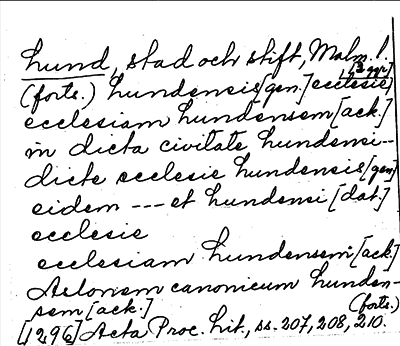 Lund, stad och stift, Malm. l.
[3 ggr]
(forts.) lundensis [gen.] ecclesie
ecclesiam lundensem [ack.]
in dicta civitate lundensi--
dicte ecclesie lundensis [gen]
eidem --- et lundensi [dat.]
ecclesie
ecclesiam lundensem [ack.]
Aslonem canonicum lunden-
sem [ack.] (forts.)
[1296] Acta Proc. lit., ss. 207, 208, 210.